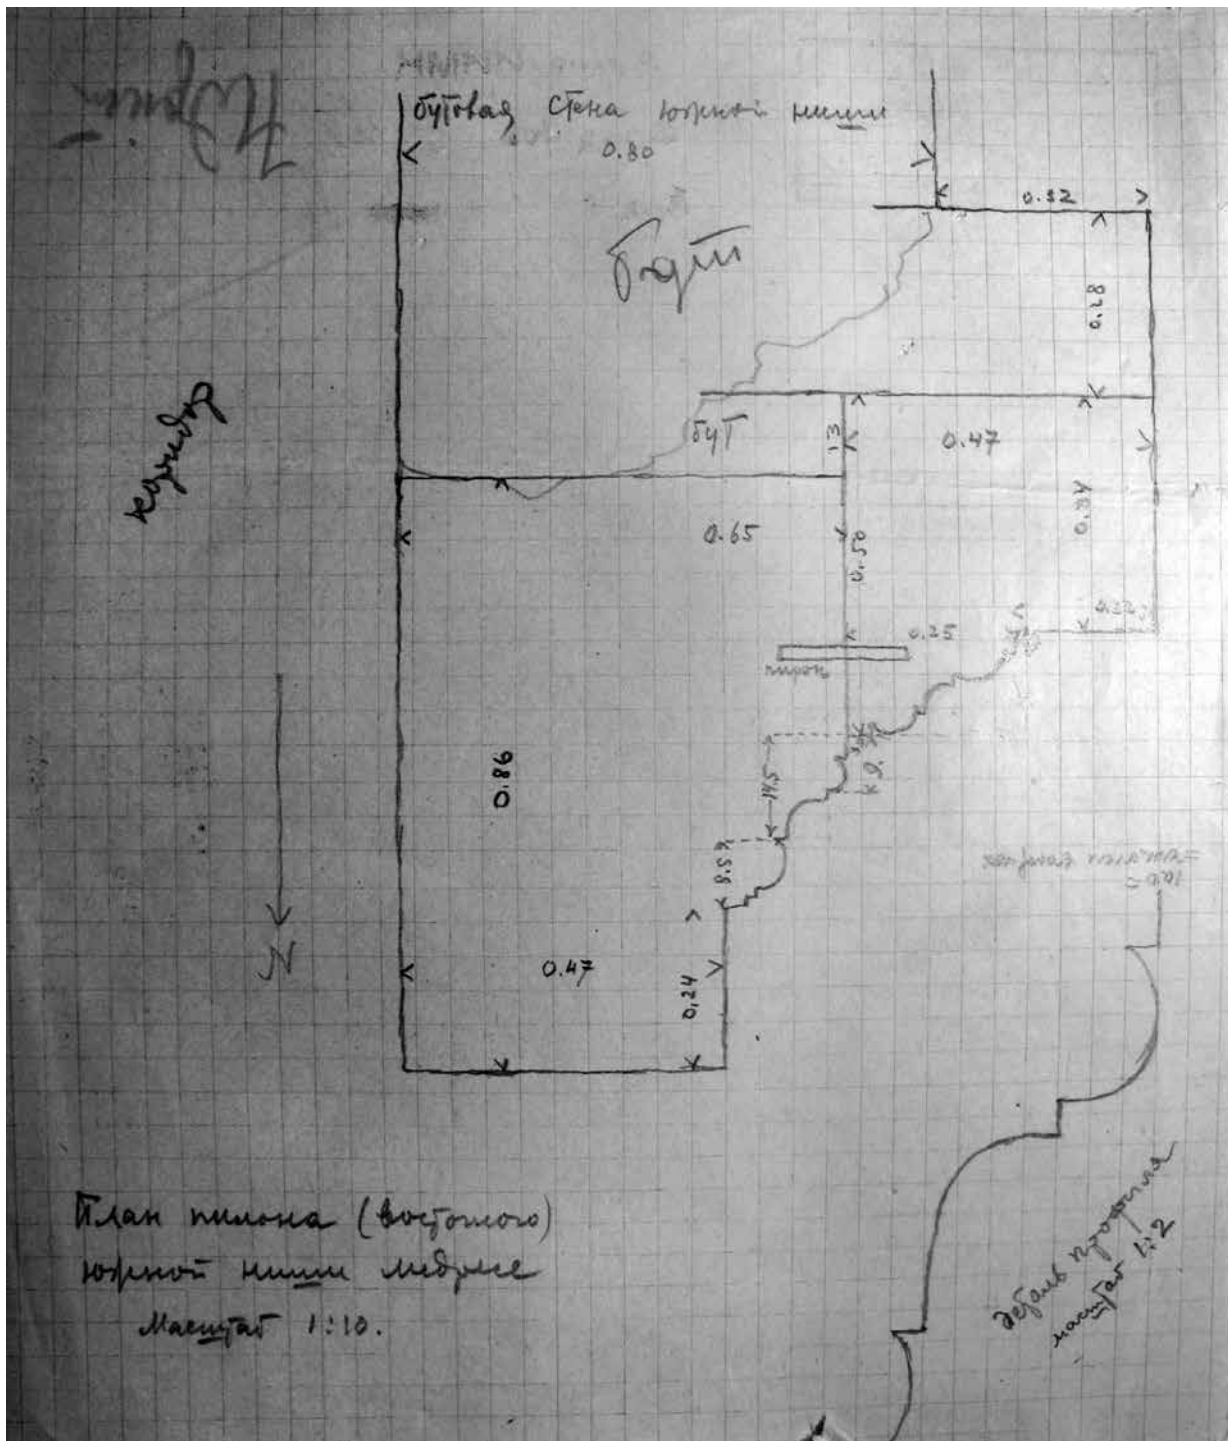 бутовая стена южной ниши
0.80
0.32
бут
0.28
бут
13
0.47
0.34
0.65
0.50
коридор
0.25
0.22
пирон
0.86
14.5
9.
8.5
N
0.47
0.24
План пилона (восточного)
южной ниши медресе
Масштаб 1:10.
деталь профиля
масштаб 1:2